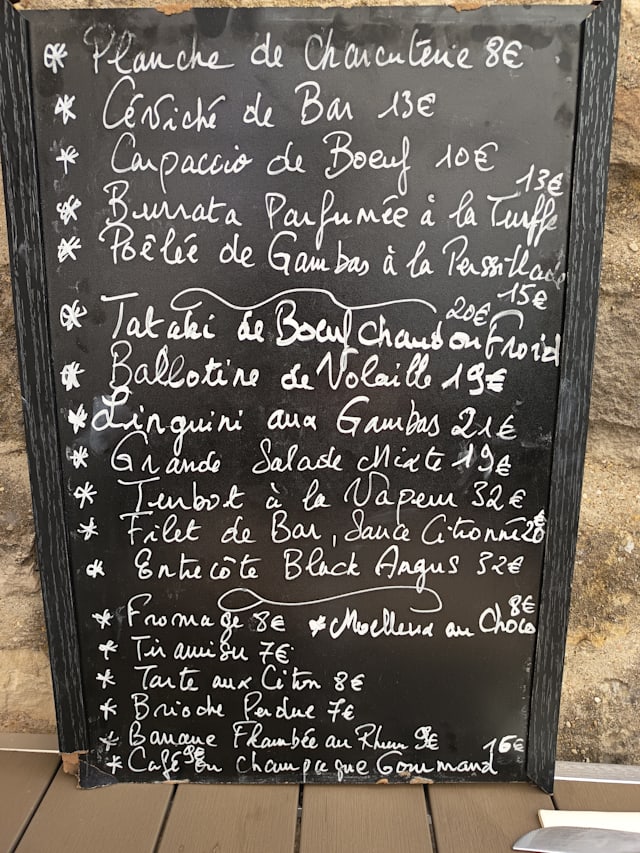 * Planche de Charcuterie 8€
* Céviché de Bar 13€
* Carpaccio de Boeuf 10€
* Burrata Parfumée à la Truffe 13€
* Poêlée de Gambas à la Perssillade 15€
* Tataki de Boeuf chaud ou Froid 20€
* Ballotine de Volaille 19€
* Linguini aux Gambas 21€
* Grande Salade Mixte 19€
* Turbot à la Vapeur 32€
* Filet de Bar, Sauce Citronné 26€
* Entrecôte Black Angus 32€
* Fromage 8€ * Moelleux au Choco 8€
* Tiramisu 7€
* Tarte aux Citron 8€
* Brioche Perdue 7€
* Banane Flambée au Rhum 9€
* Café 9€ ou Champagne Gourmand 16€